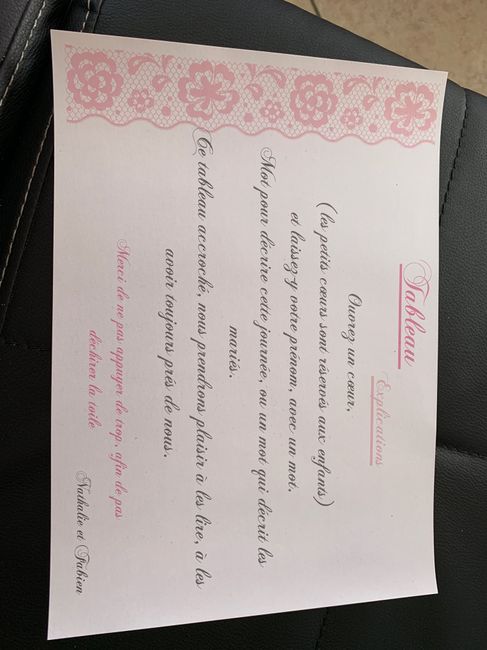 Tableau
Explications
Ouvrez un cœur,
(les petits cœurs sont réservés aux enfants)
et laissez-y votre prénom, avec un mot.
Mot pour décrire cette journée, ou un mot qui décrit les
mariés.
Ce tableau accroché, nous prendrons plaisir à les lire, à les
avoir toujours près de nous.
Merci de ne pas appuyer de trop, afin de pas
déchirer la toile
Nathalie et Fabien